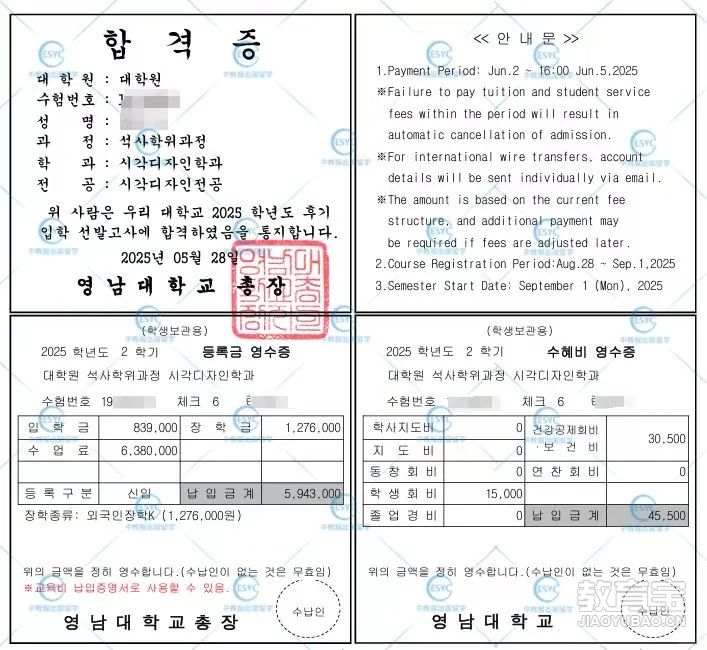 합격증
대학원 : 대학원
수험번호 :
성 명 :
과 정 : 석사학위과정
학 과 : 시각디자인학과
전 공 : 시각디자인전공
위 사람은 우리 대학교 2025 학년도 후기
입학 선발고사에 합격하였음을 통지합니다.
2025년 05월 28일
영남대학교 총장
<< 안 내 문 >>
1.Payment Period: Jun.2 ~ 16:00 Jun.5,2025
※Failure to pay tuition and student service
fees within the period will result in
automatic cancellation of admission.
※For international wire transfers, account
details will be sent individually via email.
※The amount is based on the current fee
structure, and additional payment may
be required if fees are adjusted later.
2.Course Registration Period:Aug.28 ~ Sep.1,2025
3.Semester Start Date: September 1 (Mon), 2025
(학생보관용)
2025 학년도 2 학기 등록금 영수증
대학원 석사학위과정 시각디자인학과
수험번호 19 체크 6
입 학 금 839,000 장 학 금 1,276,000
수 업 료 6,380,000
등록구분 신입 납입금계 5,943,000
장학종류: 외국인장학K (1,276,000원)
위의 금액을 정히 영수합니다.(수납인이 없는 것은 무효임)
※교육비 납입증명서로 사용할 수 있음.
수납인
영남대학교총장
(학생보관용)
2025 학년도 2 학기 수혜비 영수증
대학원 석사학위과정 시각디자인학과
수험번호 체크 6
학사지도비 0 건강공제회비·보 건 비 30,500
지 도 비 0
동창회비 0 연찬회비 0
학생회비 15,000
졸업경비 0 납입금계 45,500
위의 금액을 정히 영수합니다.(수납인이 없는 것은 무효임)
수납인
영남대학교
ESYC
中教报出国留学
教育宝
JIAOYUBAO.CN